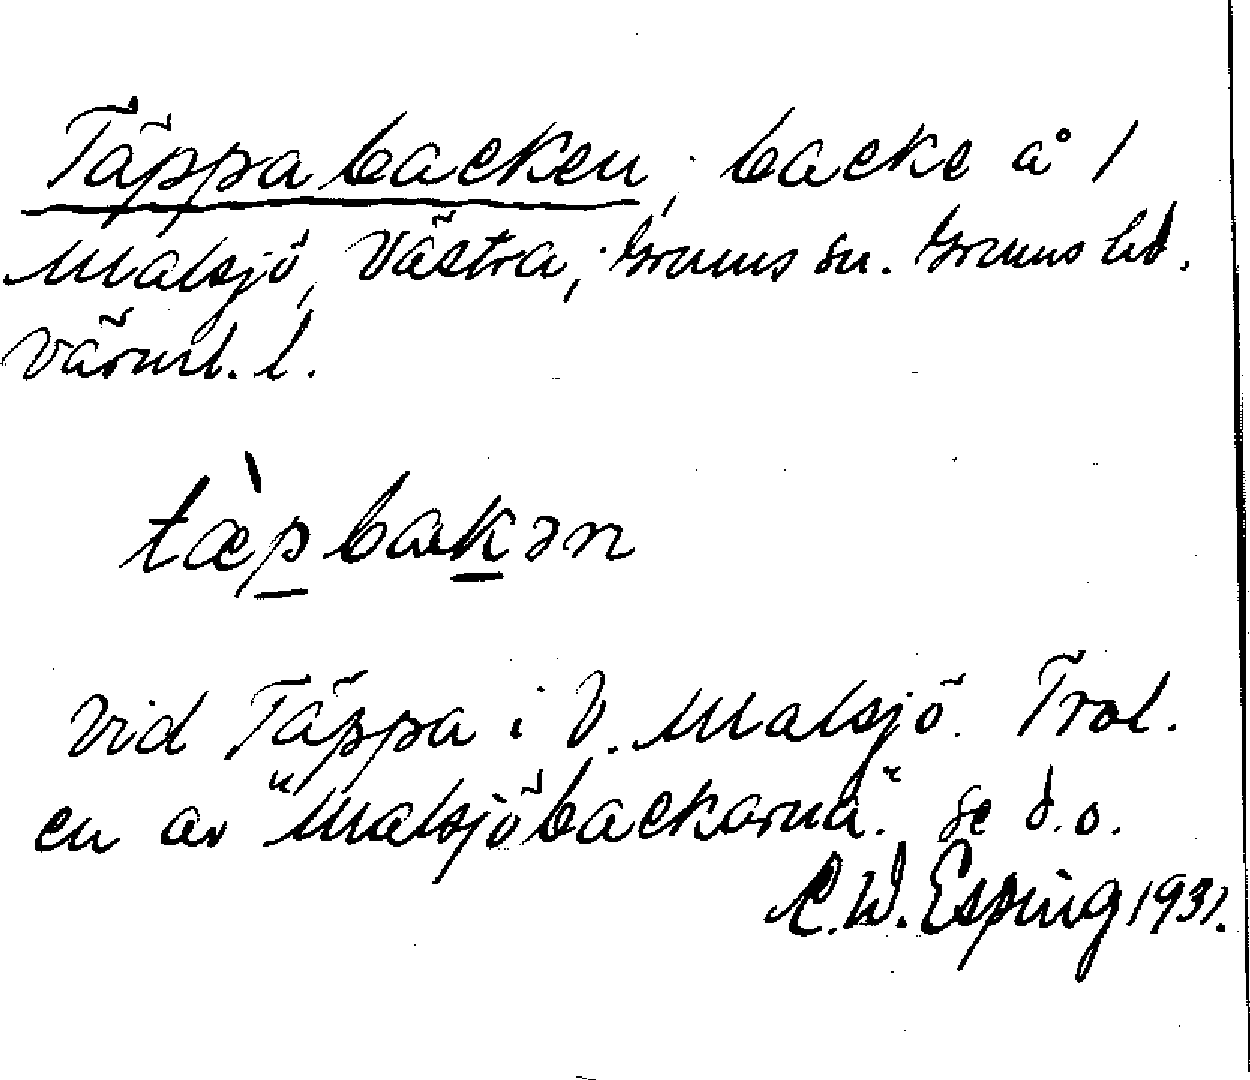 Täppabacken, backe å 1
Malsjö, Västra, Grums sn. Grums hd.
Värml. l.
tæ̀pbakən
Vid Täppa i V. Malsjö. Trol.
en av "Malsjöbackarna". Se d.o.
C.W. Esping 1931.